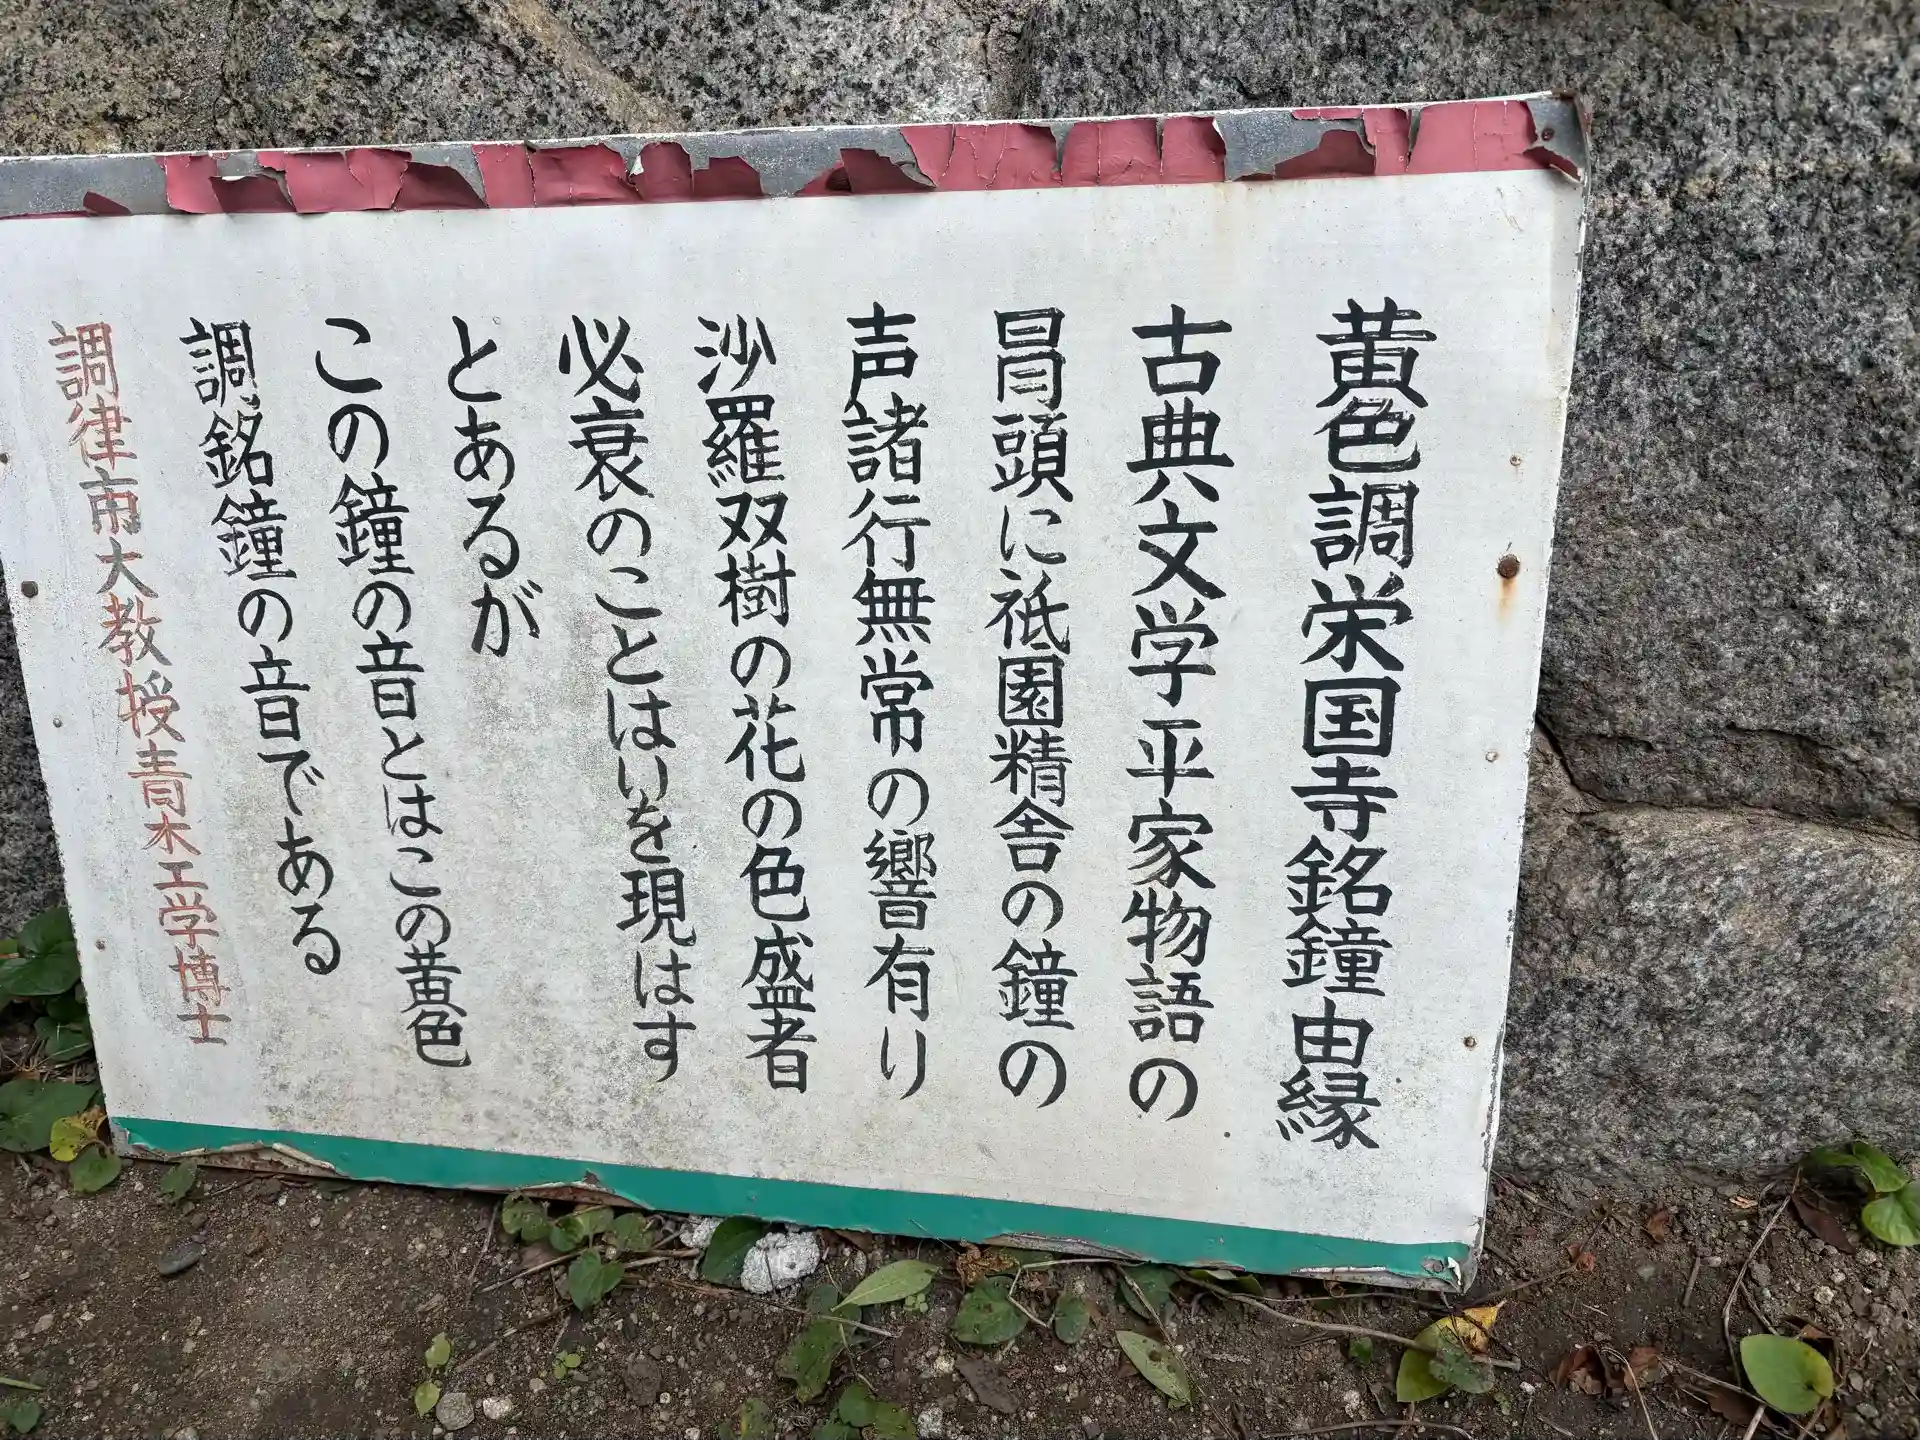 黄色調栄国寺銘鐘由縁
古典文学平家物語の
冐頭に祇園精舎の鐘の
声諸行無常の響有り
沙羅双樹の花の色盛者
必衰のことはりを現はす
とあるが
この鐘の音とはこの黄色
調銘鐘の音である
調律市大教授青木工学博士